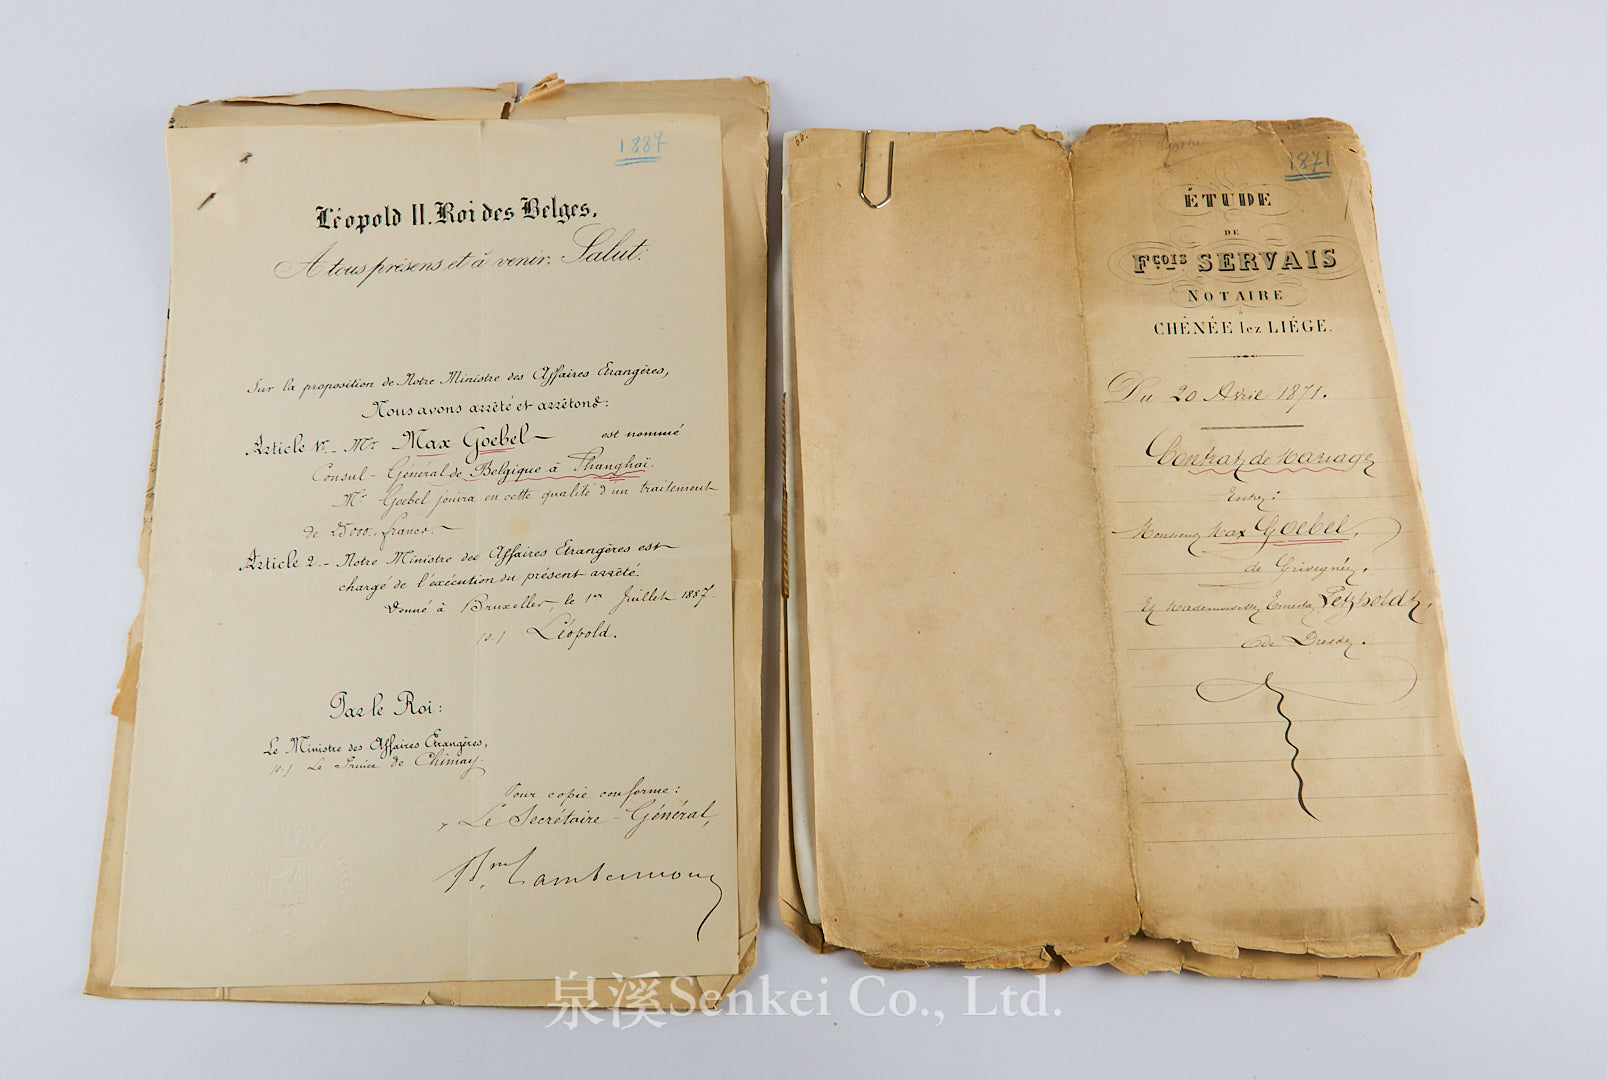 1887
Léopold II. Roi des Belges.
A tous présens et à venir, Salut:
Sur la proposition de Notre Ministre des Affaires Etrangères,
Nous avons arrêté et arrêtons:
Article 1er. - Mr Max Goebel est nommé
Consul-Général de Belgique à Shanghaï.
Mr Goebel jouira en cette qualité d'un traitement
de 25000 francs.
Article 2. - Notre Ministre des Affaires Etrangères est
chargé de l'exécution du présent arrêté.
Donné à Bruxelles, le 1er Juillet 1887.
(s.) Léopold.
Par le Roi:
Le Ministre des Affaires Etrangères,
(s.) Le Prince de Chimay.
Pour copie conforme:
Le Secrétaire-Général,
Bon Lambermont
68.
Goebel
1871
ÉTUDE
DE
Fçois SERVAIS
NOTAIRE
à
CHÊNÉE lez LIÉGE.
Du 20 Avril 1871.
Contrat de Mariage
Entre:
Monsieur Max Goebel,
de Grivegnée,
Et Mademoiselle Ernesta Petzholdt,
de Dresde.
泉溪Senkei Co., Ltd.